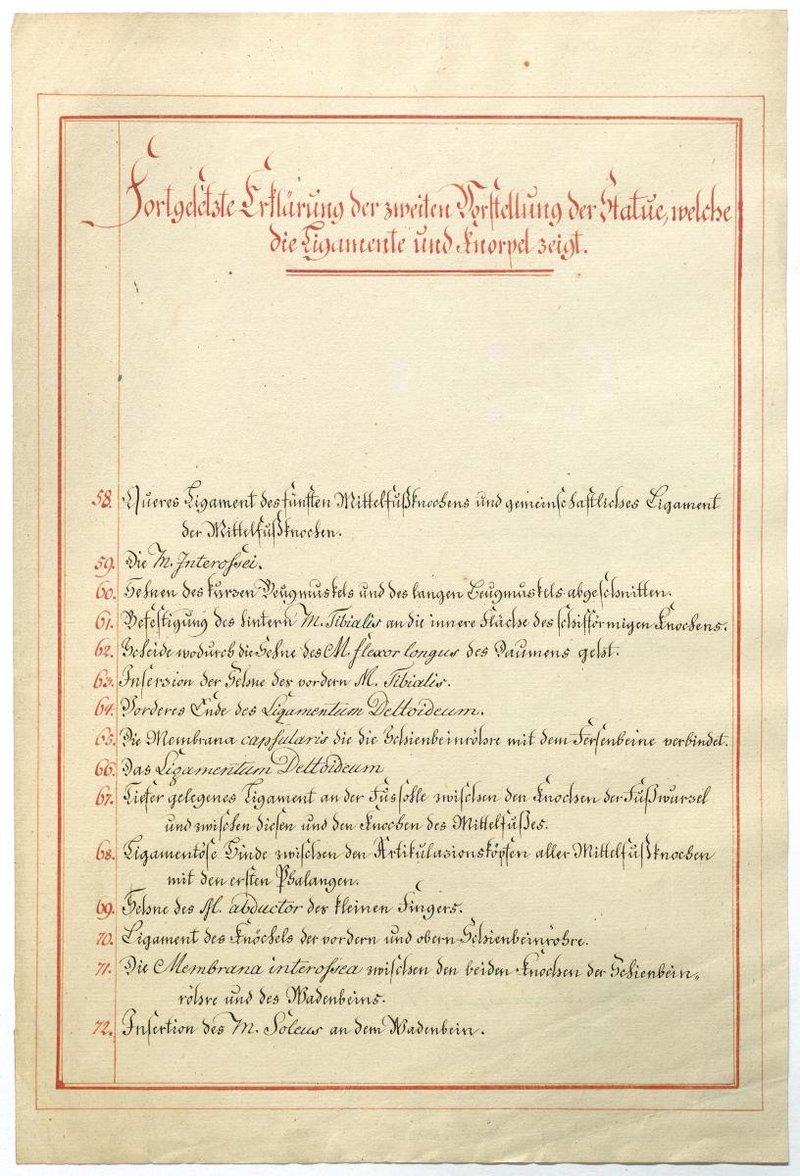 Fortgesetzte Erklärung der zweiten Vorstellung der Statue, welche
die Ligamente und Knorpel zeigt.
58. Queres Ligament des fünften Mittelfußknochens und gemeinschaftliches Ligament
der Mittelfußknochen.
59. Die M. Interossei.
60. Sehnen des kurzen Beugmuskels und des langen Beugmuskels abgeschnitten.
61. Befestigung des hintern M. Tibialis an die innere Fläche des schifförmigen Knochens.
62. Scheide wodurch die Sehne des M. flexor longus des Daumens geht.
63. Insersion der Sehne des vordern M. Tibialis.
64. Vorderes Ende des Ligamentum Deltoideum.
65. Die Membrana capsularis die die Schienbeinröhre mit dem Fersenbeine verbindet.
66. Das Ligamentum Deltoideum
67. Tiefer gelegenes Ligament an der Fussohle zwischen den Knochen der Fußwurzel
und zwischen diesen und den Knochen des Mittelfußes.
68. Ligamentöse Binde zwischen den Artikulasionsköpfen aller Mittelfußknochen
mit den ersten Phalangen.
69. Sehne des M. abductor des kleinen Fingers.
70. Ligament des Knöchels der vordern und obern Schienbeinröhre.
71. Die Membrana interossea zwischen den beiden Knochen der Schienbein„
röhre und des Wadenbeins.
72. Insertion des M. Soleus an dem Wadenbein.